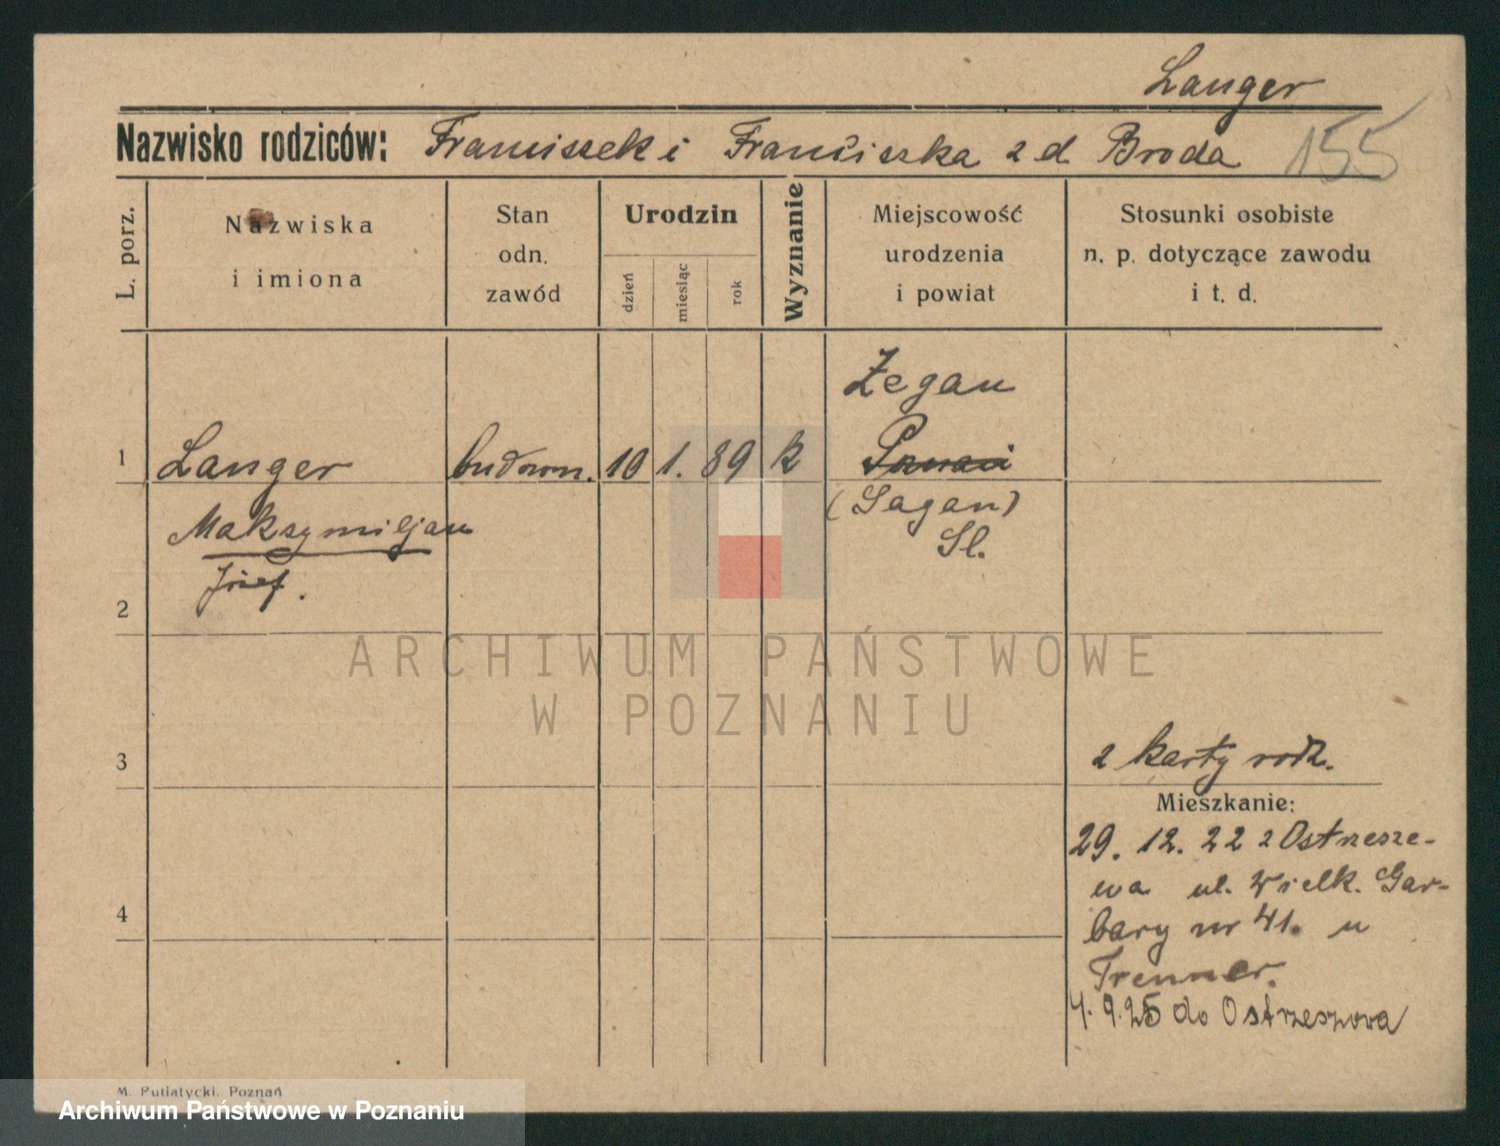 Langer
Nazwisko rodziców: Franciszek i Franciszka z d Broda 155
L. porz.
Nazwiska
i imiona
Stan
odn.
zawód
Urodzin
dzień
miesiąc
rok
Wyznanie
Miejscowość
urodzenia
i powiat
Stosunki osobiste
n. p. dotyczące zawodu
i t. d.
Żegan
1 Langer budown. 10 1. 89 k Poznań
(Sagan)
Maksymiljan
Sl.
Józef.
2
ARCHIWUM PAŃSTWOWE
W POZNANIU
3
z karty rodz.
Mieszkanie:
29. 12. 22 z Ostrzesze-
wa ul. Wielk. Gar-
4
bary nr 41. u
Trenner.
4. 9. 25 do Ostrzeszowa
M. Putiatycki. Poznań
Archiwum Państwowe w Poznaniu